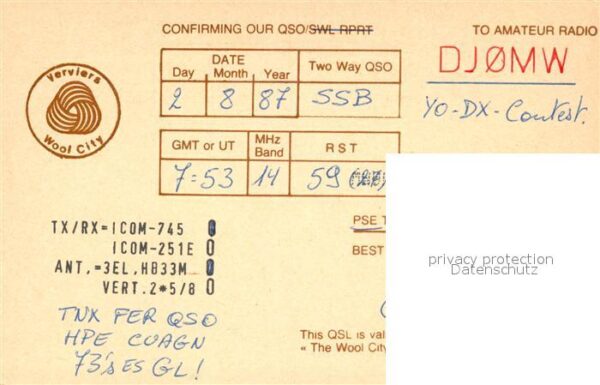 CONFIRMING OUR QSO/SWL RPRT
TO AMATEUR RADIO
DJØMW
YO-DX-Contest.
Verviers
Wool City
DATE
Day Month Year Two Way QSO
2 8 87 SSB
GMT or UT MHz Band R S T
7:53 14 59
PSE
BEST
TX/RX=ICOM-745
ICOM-251E
ANT,=3EL,HB33M
VERT.2*5/8
TNX FER QSO
HPE CUAGN
73's ES GL!
This QSL is val
« The Wool City
privacy protection
Datenschutz